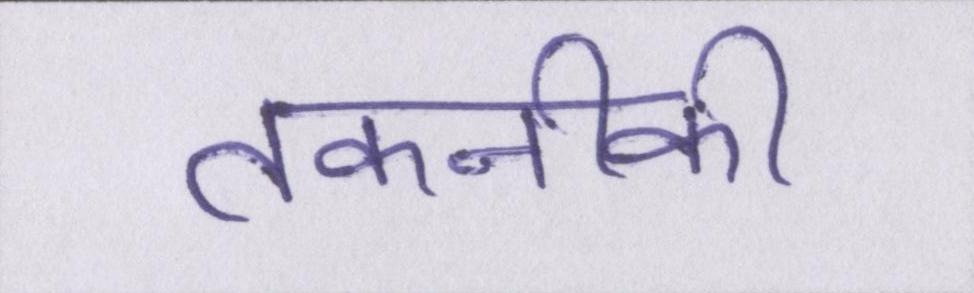 तकनीकी